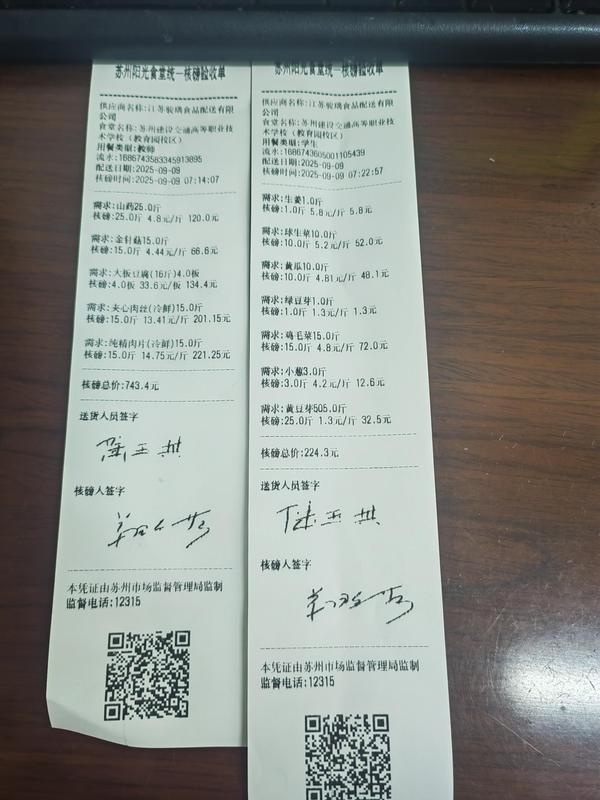 苏州阳光食堂统一核磅验收单
供应商名称:江苏骏瑀食品配送有限
公司
食堂名称:苏州建设交通高等职业技
术学校(教育园校区)
用餐类型:教师
流水:1686743583345913895
配送日期:2025-09-09
核磅时间:2025-09-09 07:14:07
需求:山药25.0斤
核磅:25.0斤 4.8元/斤 120.0元
需求:金针菇15.0斤
核磅:15.0斤 4.44元/斤 66.6元
需求:大板豆腐(16斤)4.0板
核磅:4.0板 33.6元/板 134.4元
需求:夹心肉丝(冷鲜)15.0斤
核磅:15.0斤 13.41元/斤 201.15元
需求:纯精肉片(冷鲜)15.0斤
核磅:15.0斤 14.75元/斤 221.25元
核磅总价:743.4元
送货人员签字
核磅人签字
本凭证由苏州市场监督管理局监制
监督电话:12315
苏州阳光食堂统一核磅验收单
供应商名称:江苏骏瑀食品配送有限
公司
食堂名称:苏州建设交通高等职业技
术学校(教育园校区)
用餐类型:学生
流水:1686743605001105439
配送日期:2025-09-09
核磅时间:2025-09-09 07:22:57
需求:生姜1.0斤
核磅:1.0斤 5.8元/斤 5.8元
需求:球生菜10.0斤
核磅:10.0斤 5.2元/斤 52.0元
需求:黄瓜10.0斤
核磅:10.0斤 4.81元/斤 48.1元
需求:绿豆芽1.0斤
核磅:1.0斤 1.3元/斤 1.3元
需求:鸡毛菜15.0斤
核磅:15.0斤 4.8元/斤 72.0元
需求:小葱3.0斤
核磅:3.0斤 4.2元/斤 12.6元
需求:黄豆芽505.0斤
核磅:25.0斤 1.3元/斤 32.5元
核磅总价:224.3元
送货人员签字
核磅人签字
本凭证由苏州市场监督管理局监制
监督电话:12315